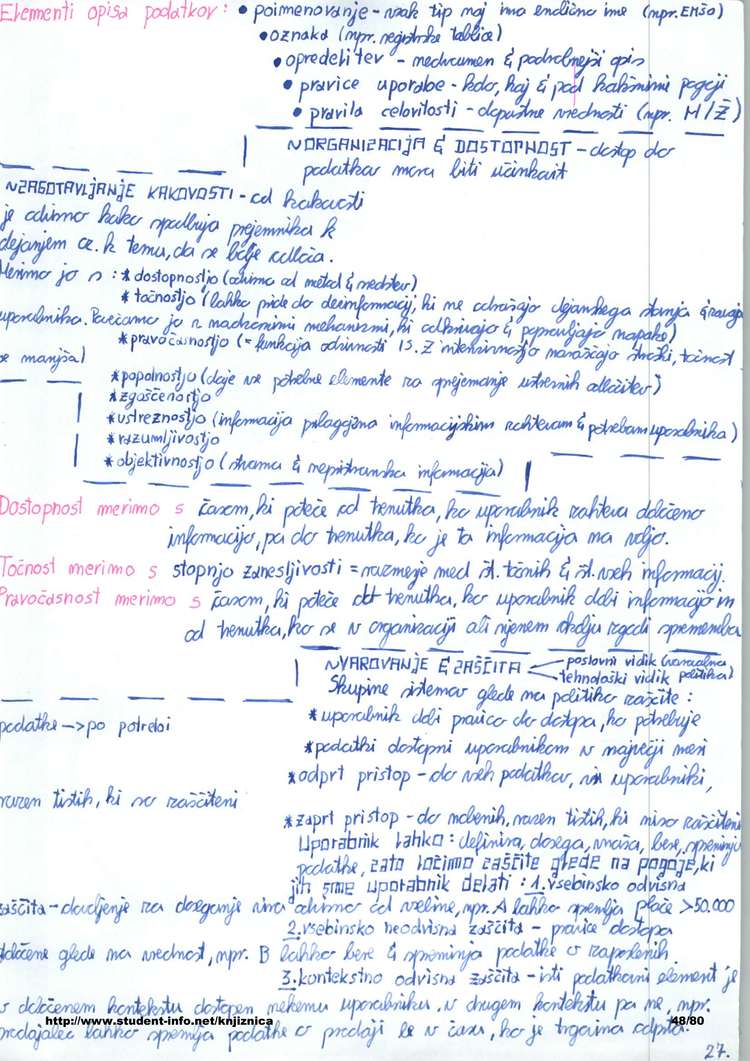 Elementi opisa podatkov: • poimenovanje - vsak tip naj ima enolično ime (npr. EMŠO)
• oznaka (npr. registrske tablice)
• opredelitev - nedvoumen & podrobnejši opis
• pravice uporabe - kdo, kaj & pod kakšnimi pogoji
• pravila celovitosti - dopustne vrednosti (npr. M/Ž)
~ORGANIZACIJA & DOSTOPNOST - dostop do
podatkov mora biti učinkovit
~ZAGOTAVLJANJE KAKOVOSTI - od kakovosti
je odvisno kako spodbuja prejemnika k
dejanjem oz. k temu, da se bolje odloča.
Merimo jo s: * dostopnostjo (odvisna od metod & sredstev)
* točnostjo (lahko pride do dezinformacij, ki ne odražajo dejanskega stanja &
uporabnika. Povečamo jo z nadzornimi mehanizmi, ki odkrivajo & popravljajo napake)
* pravočasnostjo (= funkcija odzivnosti IS. Z intenzivnostjo naraščajo stroški, točnost
se manjša)
* popolnostjo (daje vse potrebne elemente za sprejemanje ustreznih odločitev)
* zgoščenostjo
* ustreznostjo (informacija prilagojena informacijskim zahtevam & potrebam uporabnika)
* razumljivostjo
* objektivnostjo (stvarna & nepristranska informacija)
Dostopnost merimo s časom, ki poteče od trenutka, ko uporabnik zahteva določeno
informacijo, pa do trenutka, ko je ta informacija na voljo.
Točnost merimo s stopnjo zanesljivosti = razmerje med št. točnih & št. vseh informacij.
Pravočasnost merimo s časom, ki poteče od trenutka, ko uporabnik dobi informacijo in
od trenutka, ko se v organizaciji ali njenem okolju zgodi sprememba
~VAROVANJE & ZAŠČITA poslovni vidik (varnostna
tehnološki vidik politika)
Skupine sistemov glede na politiko zaščite:
* uporabnik dobi pravico do dostopa, ko potrebuje
podatke -> po potrebi
* podatki dostopni uporabnikom v največji meri
* odprt pristop - do vseh podatkov, vsi uporabniki,
razen tistih, ki so zaščiteni
* zaprt pristop - do nobenih, razen tistih, ki niso zaščiteni
Uporabnik lahko: definira, dosega, vnaša, bere, spreminja
podatke, zato ločimo zaščite glede na pogoje, ki
jih sme uporabnik delati: 1. vsebinsko odvisna
zaščita - dovoljenje za doseganje nivoja odvisno od vsebine, npr. A lahko spreminja plače >50.000
2. vsebinsko neodvisna zaščita - pravice dostopa
določene glede na vrednost, npr. B lahko bere & spreminja podatke o zaposlenih.
3. kontekstno odvisna zaščita - isti podatkovni element je
v določenem kontekstu dostopen nekemu uporabniku, v drugem kontekstu pa ne, npr.
prodajalec lahko spreminja podatke o prodaji le v času, ko je trgovina odprta.
http://www.student-info.net/knjiznica
48/80
27.